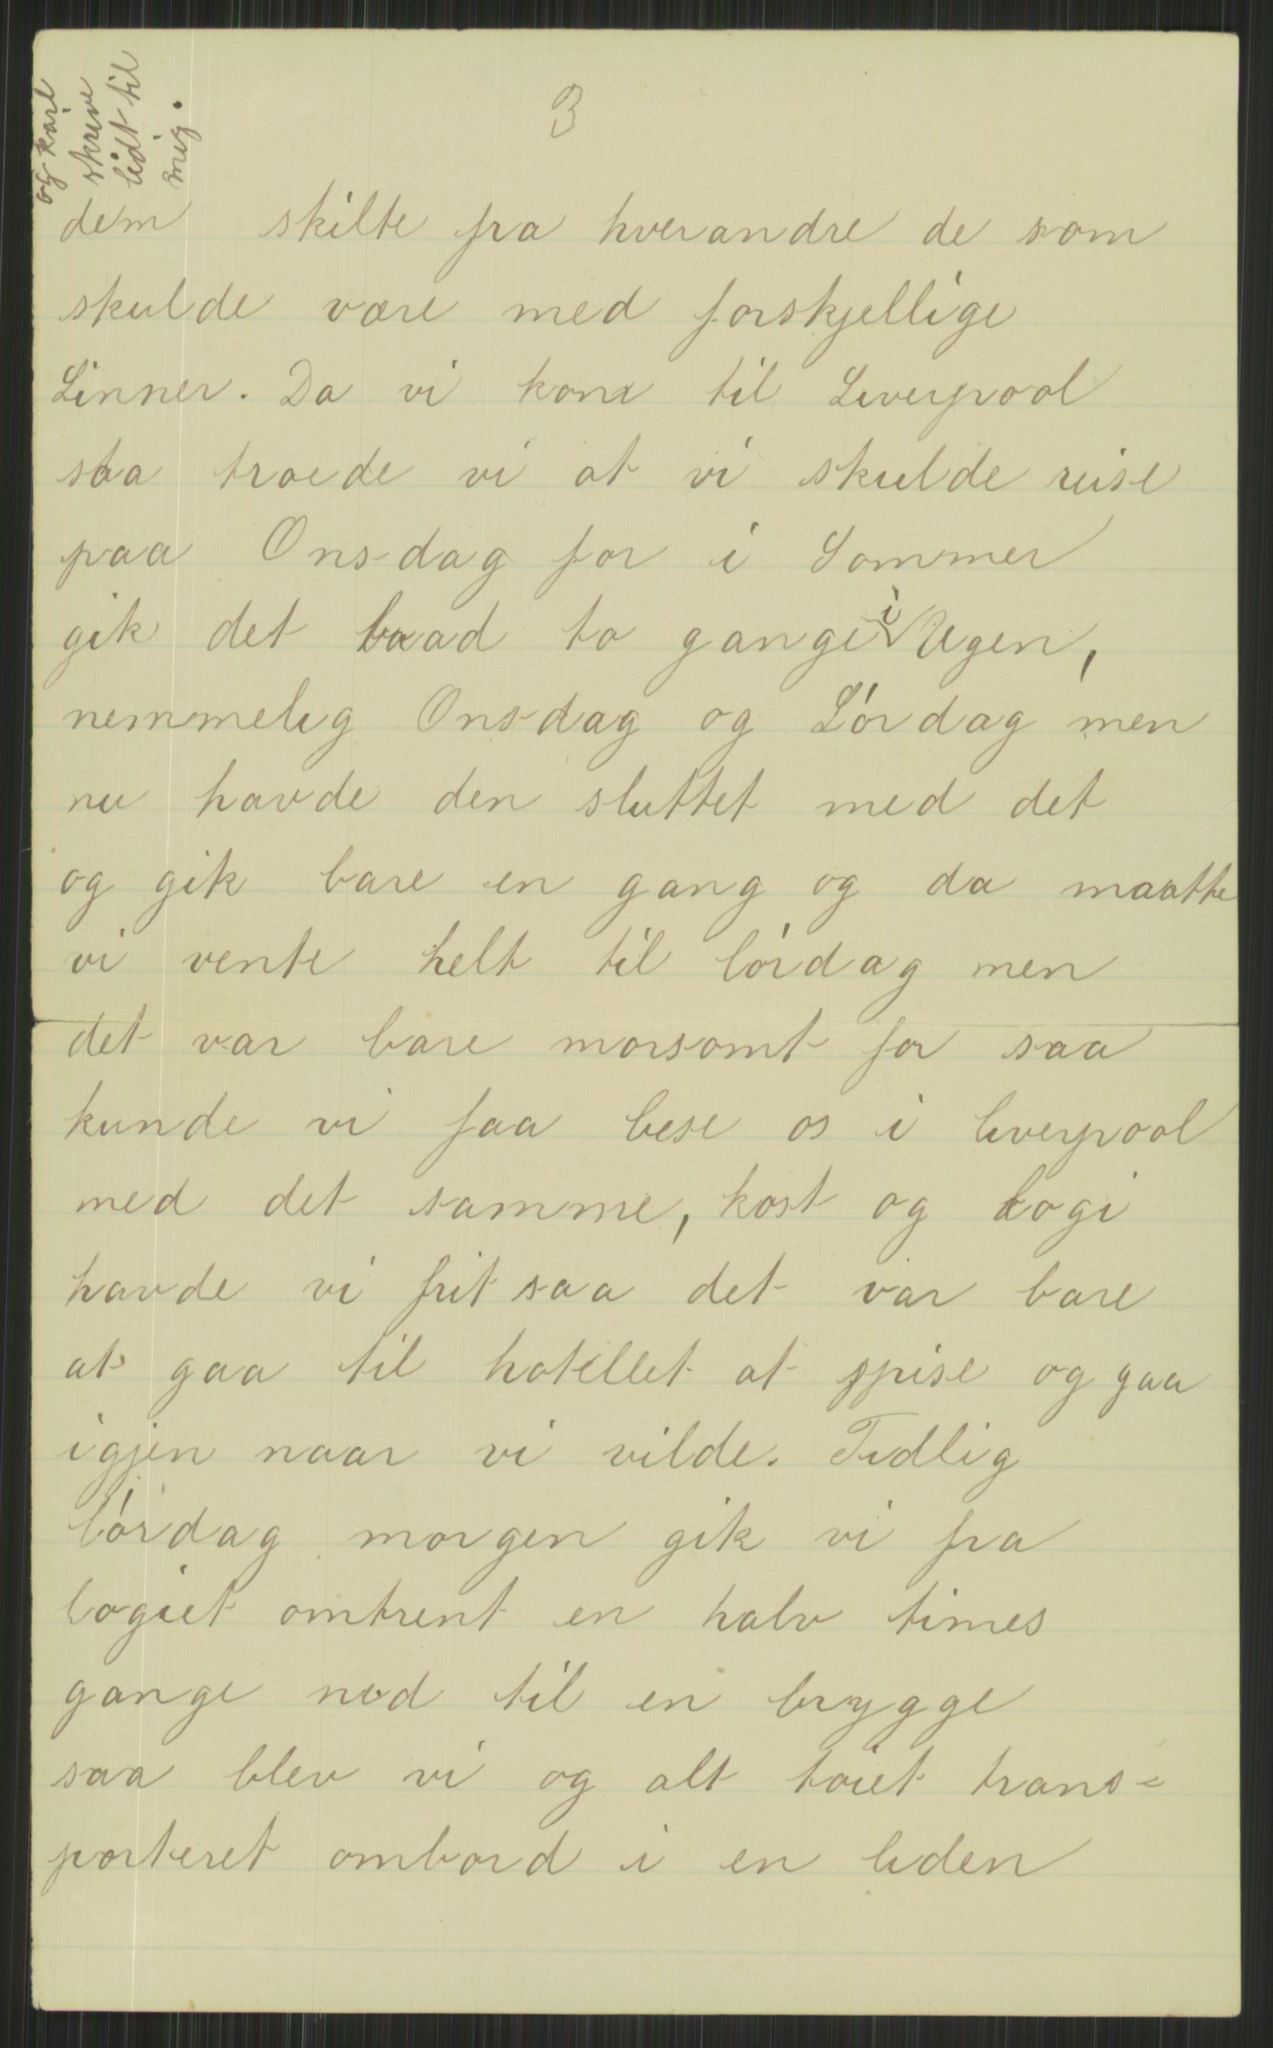 og Kari
skrive
lidt til
mig.
3
dem skilte fra hverandre de som
skulde være med forskjellige
Linner. Da vi kom til Liverpool
saa troede vi at vi skulde reise
paa Onsdag for i Sommer
gik det baad to gange i Ugen,
nemmelig Onsdag og Lórdag men
nu havde den sluttet med det
og gik bare en gang og da maatte
vi vente helt til lórdag men
det var bare morsomt for saa
kunde vi faa bese os i liverpool
med det samme, kost og Logi
havde vi frit saa det var bare
at gaa til hotellet at spise og gaa
igjen naar vi vilde. Tidlig
lórdag morgen gik vi fra
logiet omtrent en halv times
gange ned til en brygge
saa blev vi og alt tóiet trans=
porteret ombord i en liden